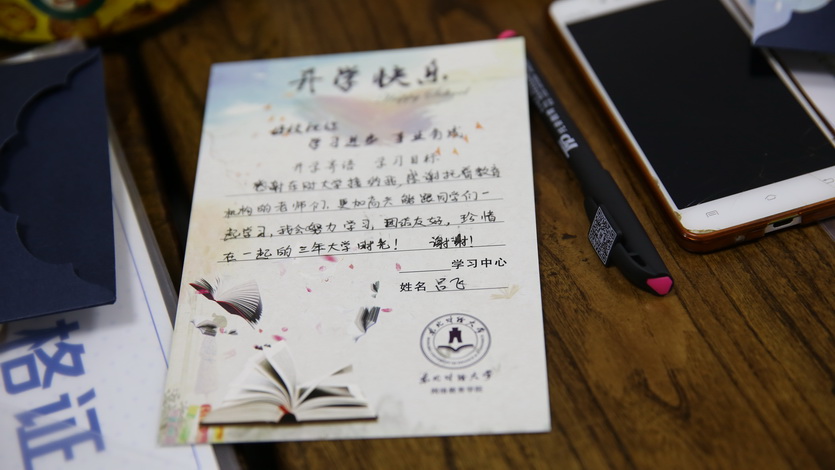 开学快乐
学习进步 事业有成
开学寄语 学习目标
感谢在财大学接纳我,感谢托育教育
机构的老师们,更加高兴能跟同学们一
起学习,我会努力学习,团结友好,珍惜
在一起的三年大学时光! 谢谢!
学习中心
姓名 吕飞
东北财经大学
东北财经大学
网络教育学院
格证